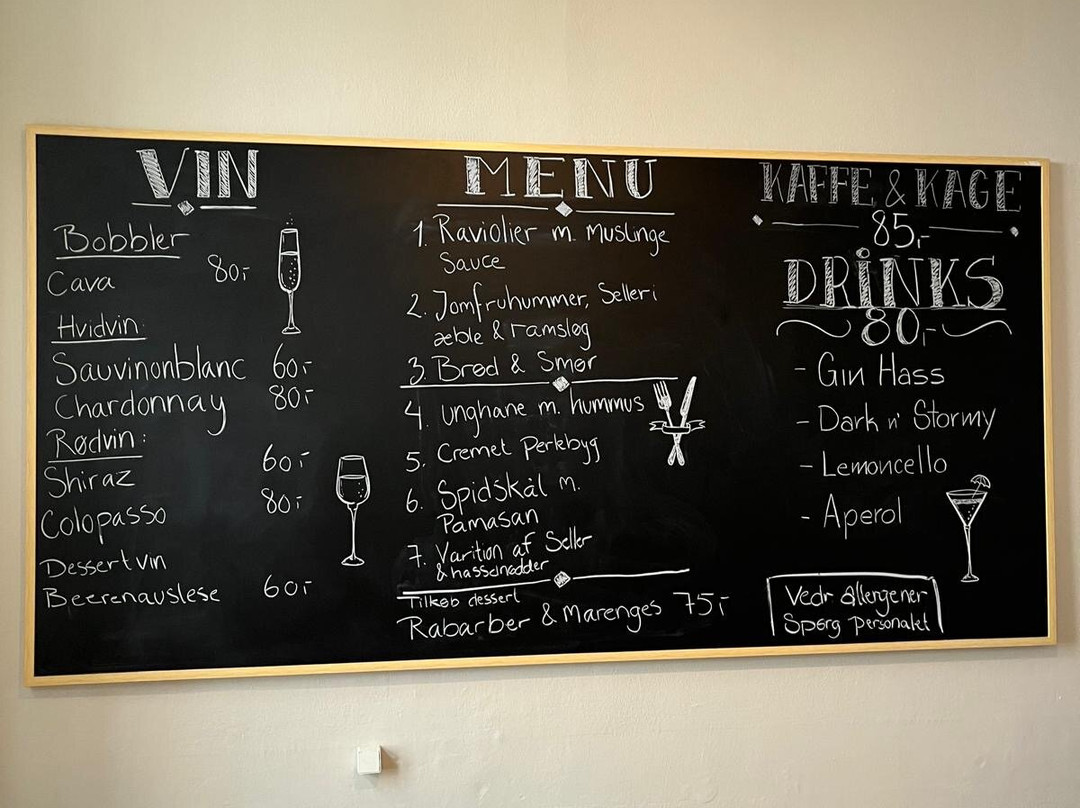 VIN
Bobbler
Cava 80,-
Hvidvin:
Sauvinonblanc 60,-
Chardonnay 80,-
Rødvin:
Shiraz 60,-
Colopasso 80,-
Dessertvin
Beerenauslese 60,-
MENU
1. Raviolier m. Muslinge
Sauce
2. Jomfruhummer, Selleri
æble & ramsløg
3. Brød & Smør
4. unghane m. hummus
5. Cremet Perlebyg
6. Spidskål m.
Pamasan
7. Varition af Seller
& hasselnødder
Tilkøb dessert
Rabarber & Marenges 75,-
KAFFE & KAGE
85,-
DRINKS
80,-
- Gin Hass
- Dark n' Stormy
- Lemoncello
- Aperol
Vedr allergener
Spørg personalet